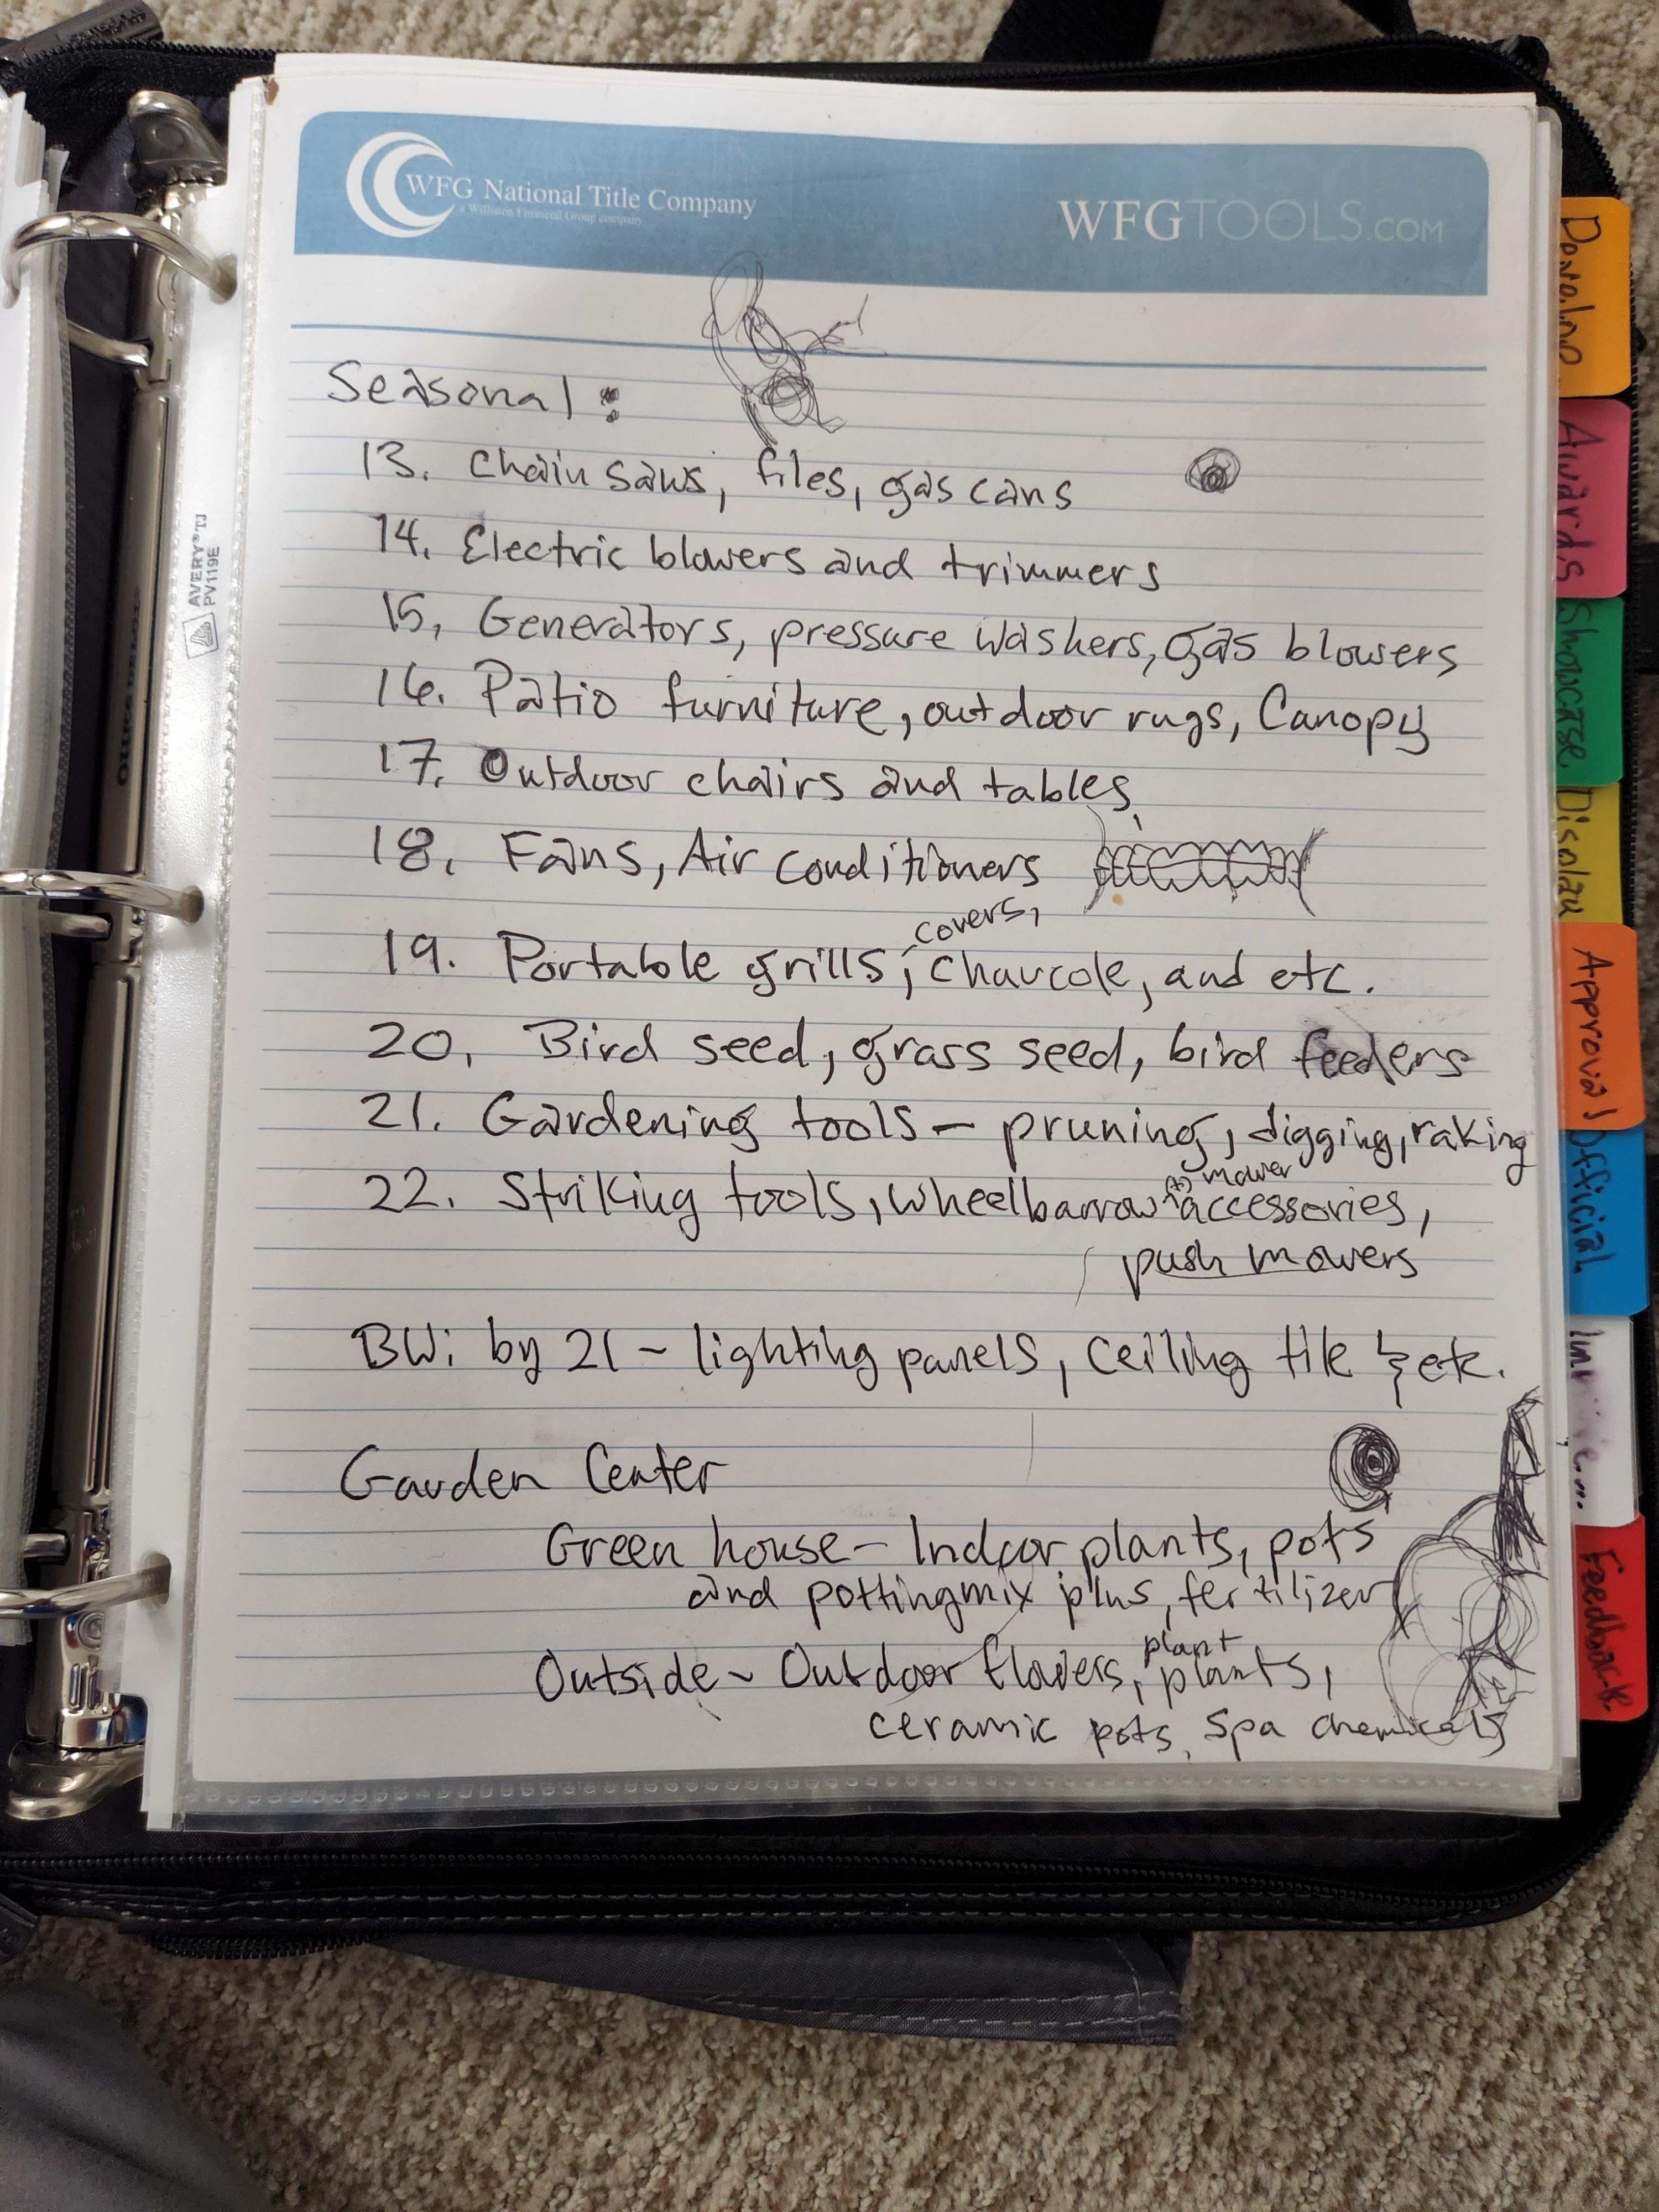 WFG National Title Company
a Williston Financial Group company
WFGTOOLS.COM
Seasonal:
13. Chain saws, files, gas cans
14. Electric blowers and trimmers
15. Generators, pressure washers, gas blowers
16. Patio furniture, outdoor rugs, Canopy
17. Outdoor chairs and tables
18. Fans, Air conditioners
covers,
19. Portable grills, charcole, and etc.
20. Bird seed, grass seed, bird feeders
21. Gardening tools - pruning, digging, raking
mower
22. Striking tools, wheelbarrow (s) accessories,
push mowers
BW: by 21 ~ lighting panels, ceiling tile & etc.
Garden Center
Green house - Indoor plants, pots
and potting mix plus, fertilizer
plant
Outside ~ Outdoor flowers, plants,
ceramic pots, spa chemicals
AVERY TJ
PV119E
Awards
Showcase
Display
Approval
Official
Feedback